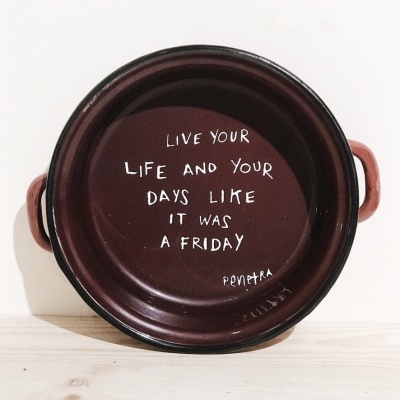 LIVE YOUR
LIFE AND YOUR
DAYS LIKE
IT WAS
A FRIDAY
PENETRA